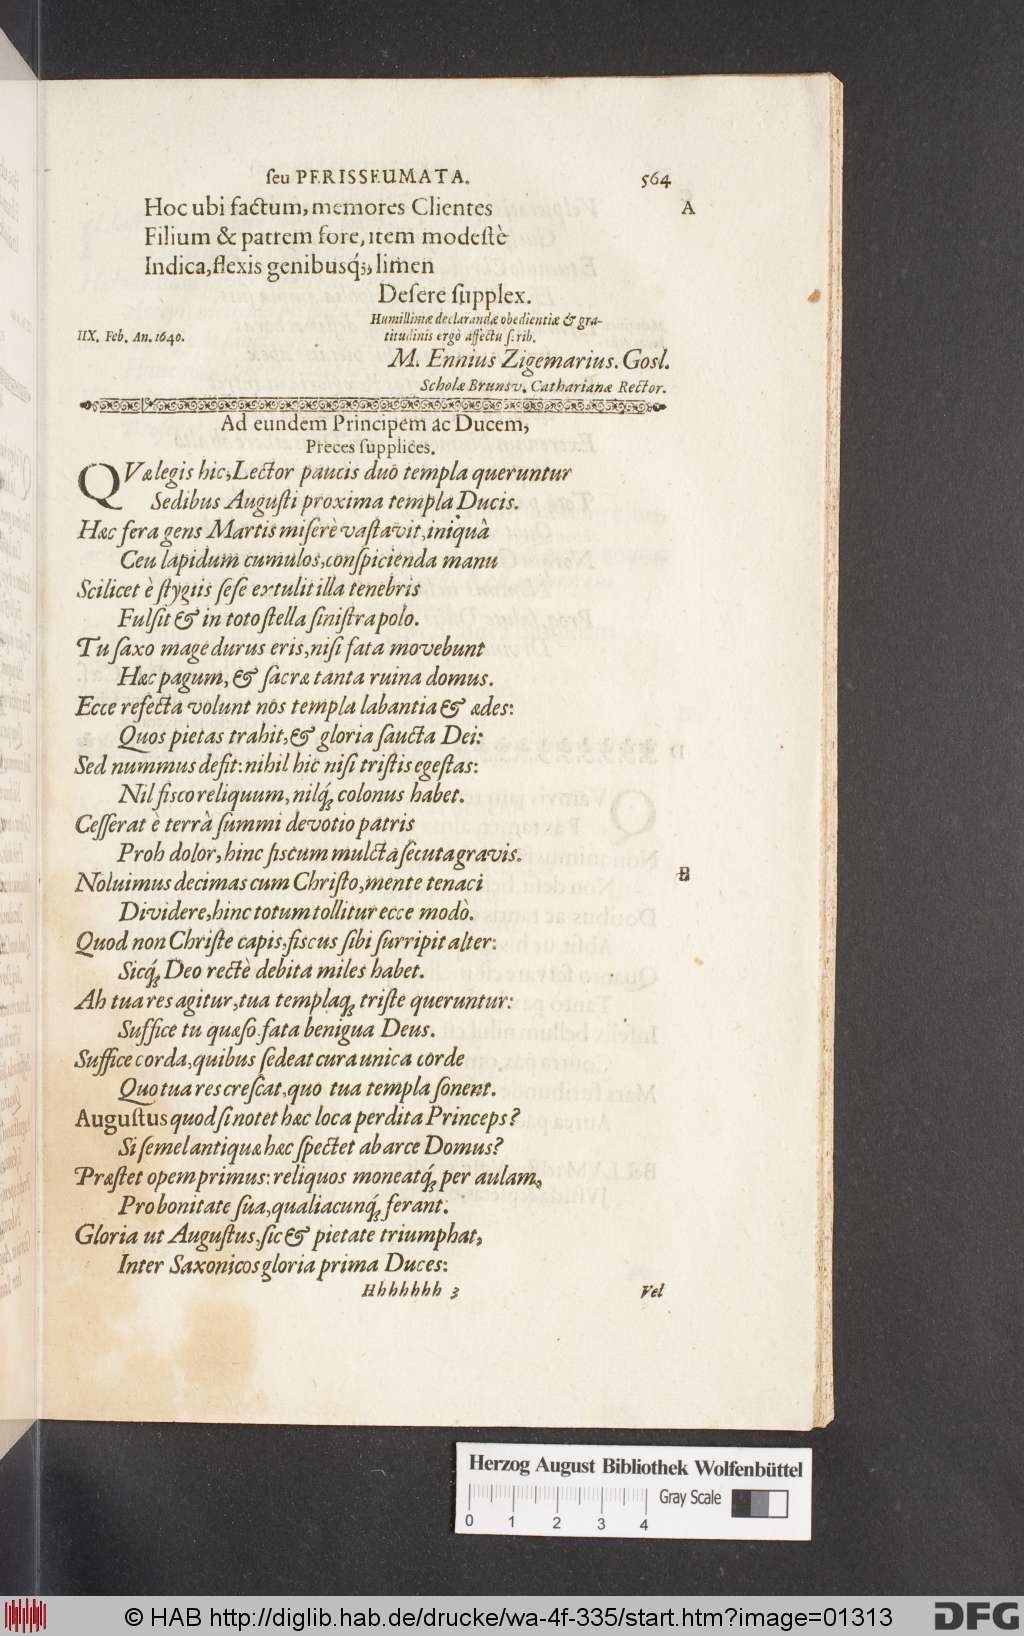 seu PERISSEUMATA. 564
Hoc ubi factum, memores Clientes A
Filium & patrem fore, item modestè
Indica, flexis genibusq́;, limen
Desere supplex.
Humillimæ declarandæ obedientiæ & gra-
IIX. Feb. An. 1640. titudinis ergò affectu scrib.
M. Ennius Zigemarius. Gosl.
Scholæ Brunsv. Catharianæ Rector.
Ad eundem Principem ac Ducem,
Preces supplices.
QVælegis hic, Lector paucis duo templa queruntur
Sedibus Augusti proxima templa Ducis.
Hæc fera gens Martis miserè vastavit, iniquâ
Ceu lapidum cumulos, conspicienda manu
Scilicet è stygiis sese extulit illa tenebris
Fulsit & in toto stella sinistra polo.
Tu saxo mage durus eris, nisi fata movebunt
Hæc pagum, & sacræ tanta ruina domus.
Ecce refecta volunt nos templa labantia & ædes:
Quos pietas trahit, & gloria sancta Dei:
Sed nummus defit: nihil hic nisi tristis egestas:
Nil fisco reliquum, nilq́; colonus habet.
Cesserat è terrâ summi devotio patris
Proh dolor, hinc fiscum mulcta secuta gravis.
Noluimus decimas cum Christo, mente tenaci B
Dividere, hinc totum tollitur ecce modò.
Quod non Christe capis, fiscus sibi surripit alter:
Sicq́; Deo rectè debita miles habet.
Ah tua res agitur, tua templaq; triste queruntur:
Suffice tu quæso fata benigua Deus.
Suffice corda, quibus sedeat cura unica corde
Quo tua res crescat, quo tua templa sonent.
Augustus quod si notet hæc loca perdita Princeps?
Si semel antiquæ hæc spectet ab arce Domus?
Præstet opem primus: reliquos moneatq́; per aulam,
Pro bonitate sua, qualiacunq́; ferant.
Gloria ut Augustus, sic & pietate triumphat,
Inter Saxonicos gloria prima Duces:
Hhhhhhh 3 Vel
Herzog August Bibliothek Wolfenbüttel
Gray Scale
0 1 2 3 4
© HAB http://diglib.hab.de/drucke/wa-4f-335/start.htm?image=01313 DFG